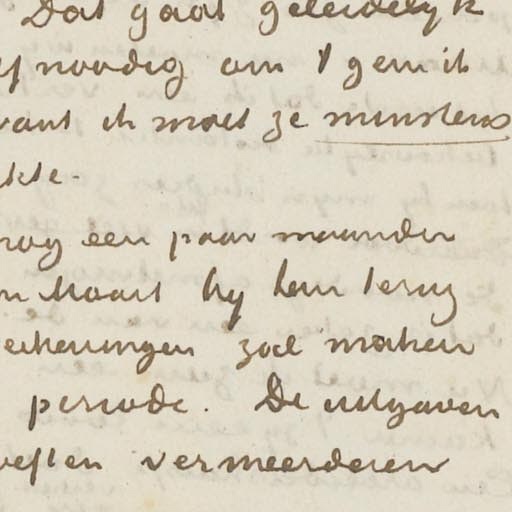 Dat gaat geleidelijk
noodig om 't gemis
want ik moet ze minstens
nog een paar maanden
Maart hij hem terug
zal maken
periode. De uitgaven
vermeerderen